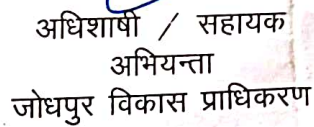 अधिशाषी / सहायक
अभियन्ता
जोधपुर विकास प्राधिकरण